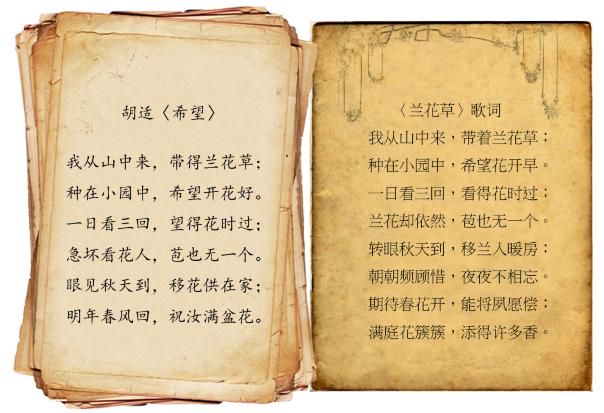 胡适〈希望〉
我从山中来，带得兰花草；
种在小园中，希望开花好。
一日看三回，望得花时过；
急坏看花人，苞也无一个。
眼见秋天到，移花供在家；
明年春风回，祝汝满盆花。
〈兰花草〉歌词
我从山中来，带着兰花草；
种在小园中，希望花开早。
一日看三回，看得花时过；
兰花却依然，苞也无一个。
转眼秋天到，移兰入暖房；
朝朝频顾惜，夜夜不相忘。
期待春花开，能将夙愿偿；
满庭花簇簇，添得许多香。